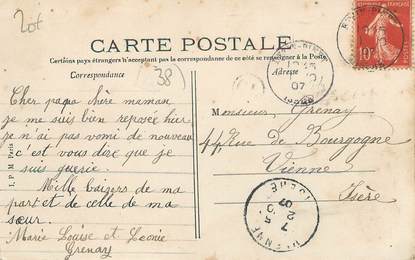 20f
CARTE POSTALE
Certains pays étrangers n'acceptant pas la correspondance de ce côté se renseigner à la Poste.
Correspondance
38
Adresse
Cher papa chère maman
je me suis bien reposée hier
je n'ai pas vomi de nouveau
c'est vous dire que je
suis guerie.
Mille baizers de ma
part et de celle de ma
sœur.
Marie Louise et Leonie
Grenay
Monsieur Grenay
44, Rue de Bourgogne
Vienne
Isère
I. P. M Paris
10c
07
VIENNE
ISERE
7
07